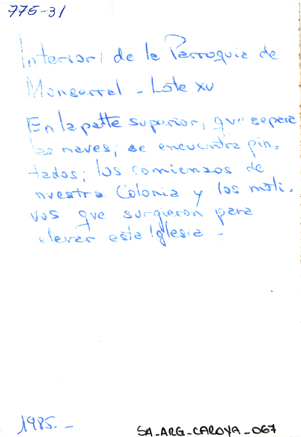 775-31
Interior de la Parroquia de
Monserrat - Lote XV
En la parte superior, que separa
las naves, se encuentra pin,
tados; los comienzos de
nuestra Colonia y los moti,
vos que surgieron para
elevar esta Iglesia -
1985.-
SA-ARG-CAROYA-067